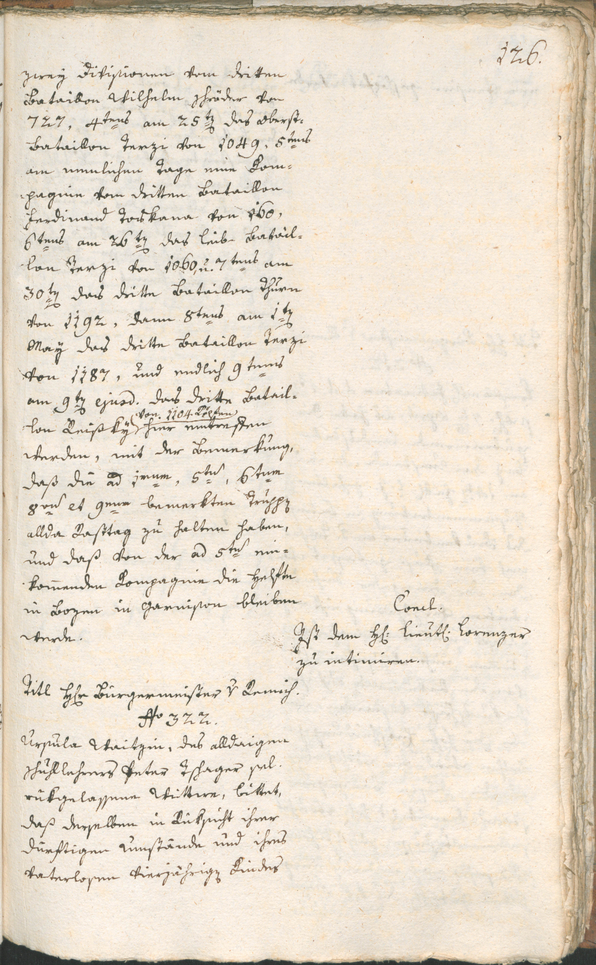 126.
zwey Divisionen vom dritten
Bataillon Wilhelm Schröder von
727, 4tens am 25ten das Oberst-
Bataillon Terzi von 1049, 5tens
am nemlichen Tage eine Kom-
pagnie vom dritten Bataillon
Ferdinand Toskana von 160,
6tens am 26ten das Leib Batail-
lon Terzi von 1060 u. 7tens am
30ten das dritte Bataillon Thurn
von 1192, dann 8tens am 1ten
May das dritte Bataillon Terzi
von 1187, und endlich 9tens
am 9ten ejusd. das dritte Batail-
lon Reisky von 1104 Köpfen hier eintreffen
werden, mit der Bemerkung,
daß die ad 1mum, 5tum, 6tum
8vum et 9num bemerkten Truppen
allda Rasttag zu halten haben,
und daß von der ad 5tum ein-
kommenden Kompagnie die Helfte
in Bozen in Garnison bleiben
werde.
Concl.
Ist dem H: Lieut: Lorenzer
zu intimiren.
Titl Hr Bürgermeister v Remich.
No 322.
Ursula Waitzin, des alldaigen
Schullehrers Peter Tschager sel.
rükgelassene Wittwe, bittet,
daß derselben in Rüksicht ihrer
dürftigen Umstände und ihres
vaterlosen vierjährigen Kindes